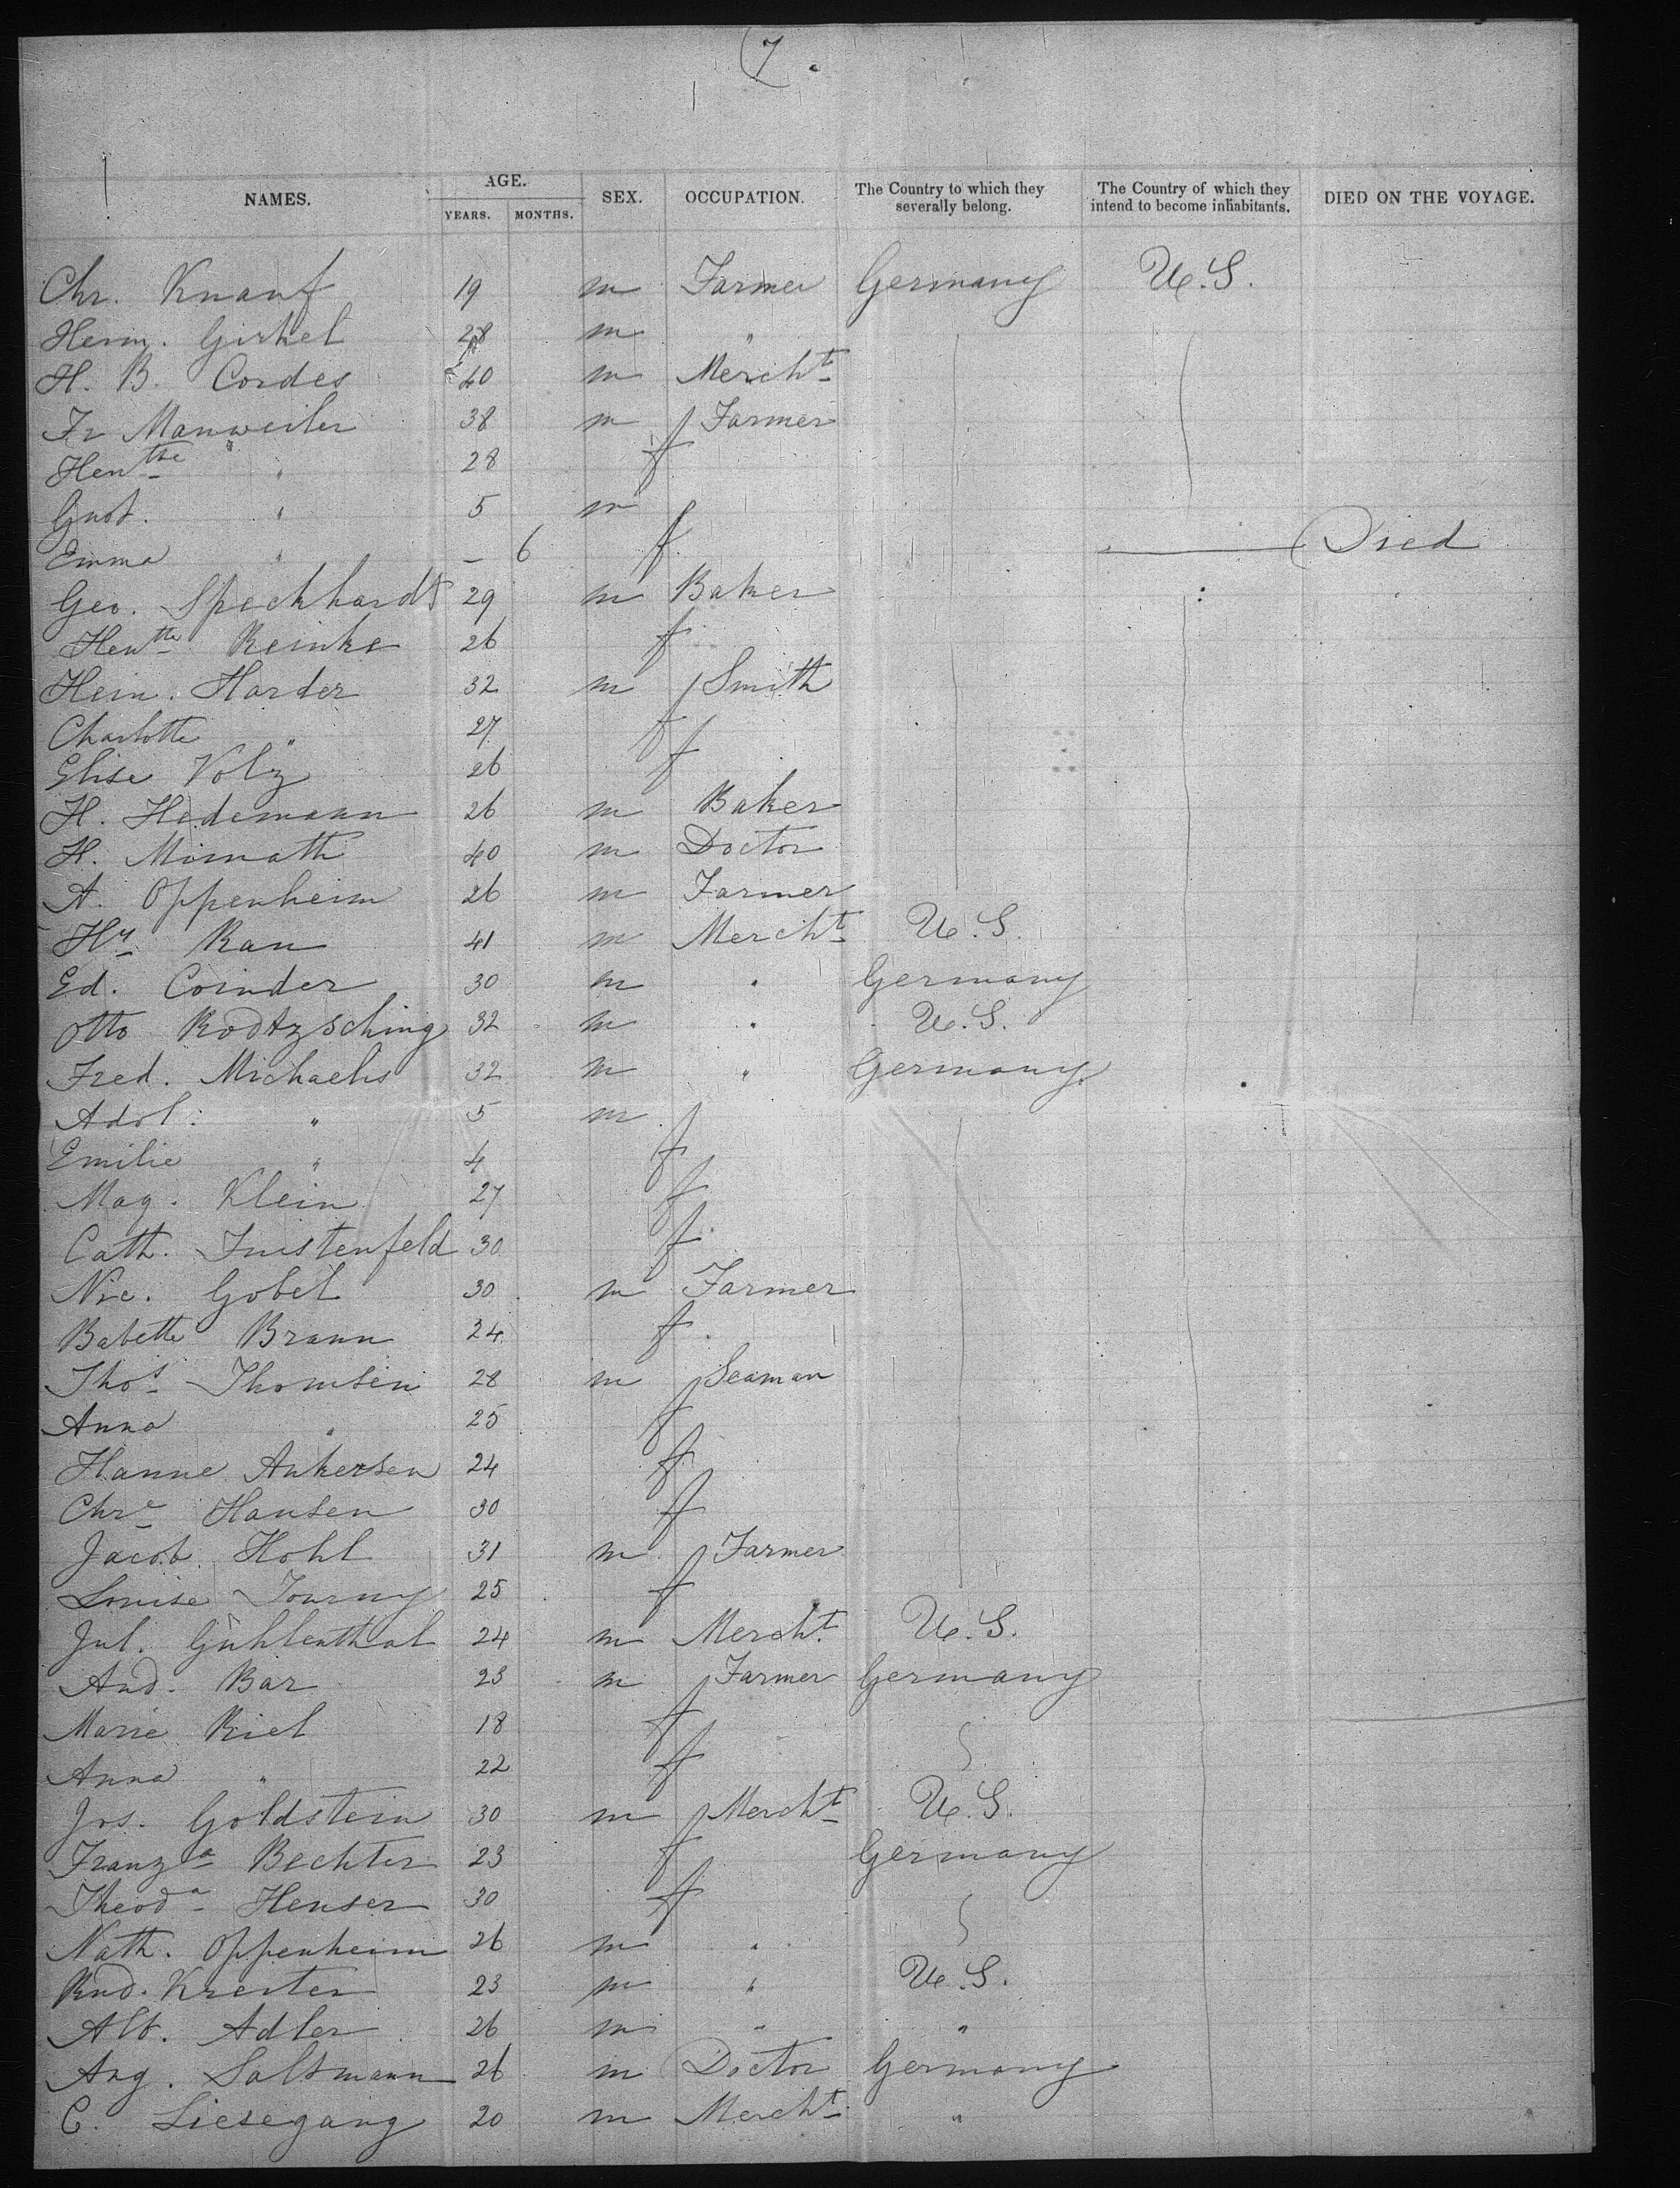 7.
NAMES. AGE. YEARS. MONTHS. SEX. OCCUPATION. The Country to which they severally belong. The Country of which they intend to become inhabitants. DIED ON THE VOYAGE.
Chr. Knauf 19 m Farmer Germany U.S.
Herm. Girkel 28 m "
H. B. Cordes 40 m Mercht
Fr Manweiler 38 m Farmer
Hentte " 28 f
Gust. " 5 m
Emma " — 6 f Died
Geo. Speckhardt 29 m Baker
Hentte Reinke 26 f
Hein. Harder 32 m Smith
Charlotte " 27 f
Elise Volz 26 f
H. Hedemann 26 m Baker
H. Mismath 40 m Doctor
A. Oppenheim 26 m Farmer
Hy Rau 41 m Mercht U.S.
Ed. Coinder 30 m " Germany
Otto Rodtzsching 32 m " U.S.
Fred. Michaelis 32 m " Germany
Adol: " 5 m
Emilie " 4 f
Mag. Klein 27 f
Cath. Fustenfeld 30 f
Nic. Gobel 30 m Farmer
Babette Braun 24 f
Thos Thomsen 28 m Seaman
Anna " 25 f
Hanne Ankersen 24 f
Chre Hansen 30 f
Jacob Hohl 31 m Farmer
Louise Tourny 25 f
Jul. Guhlenthal 24 m Mercht. U.S.
And. Bar 23 m Farmer Germany
Marie Riel 18 f
Anna " 22 f
Jos. Goldstein 30 m Mercht U.S.
Franza Bechter 23 f Germany
Theoda Henser 30 f
Nath. Oppenheim 26 m "
Rud. Krerter 23 m " U.S.
Alb. Adler 26 m " "
Aug. Saltmann 26 m Doctor Germany
C. Liesegang 20 m Mercht "